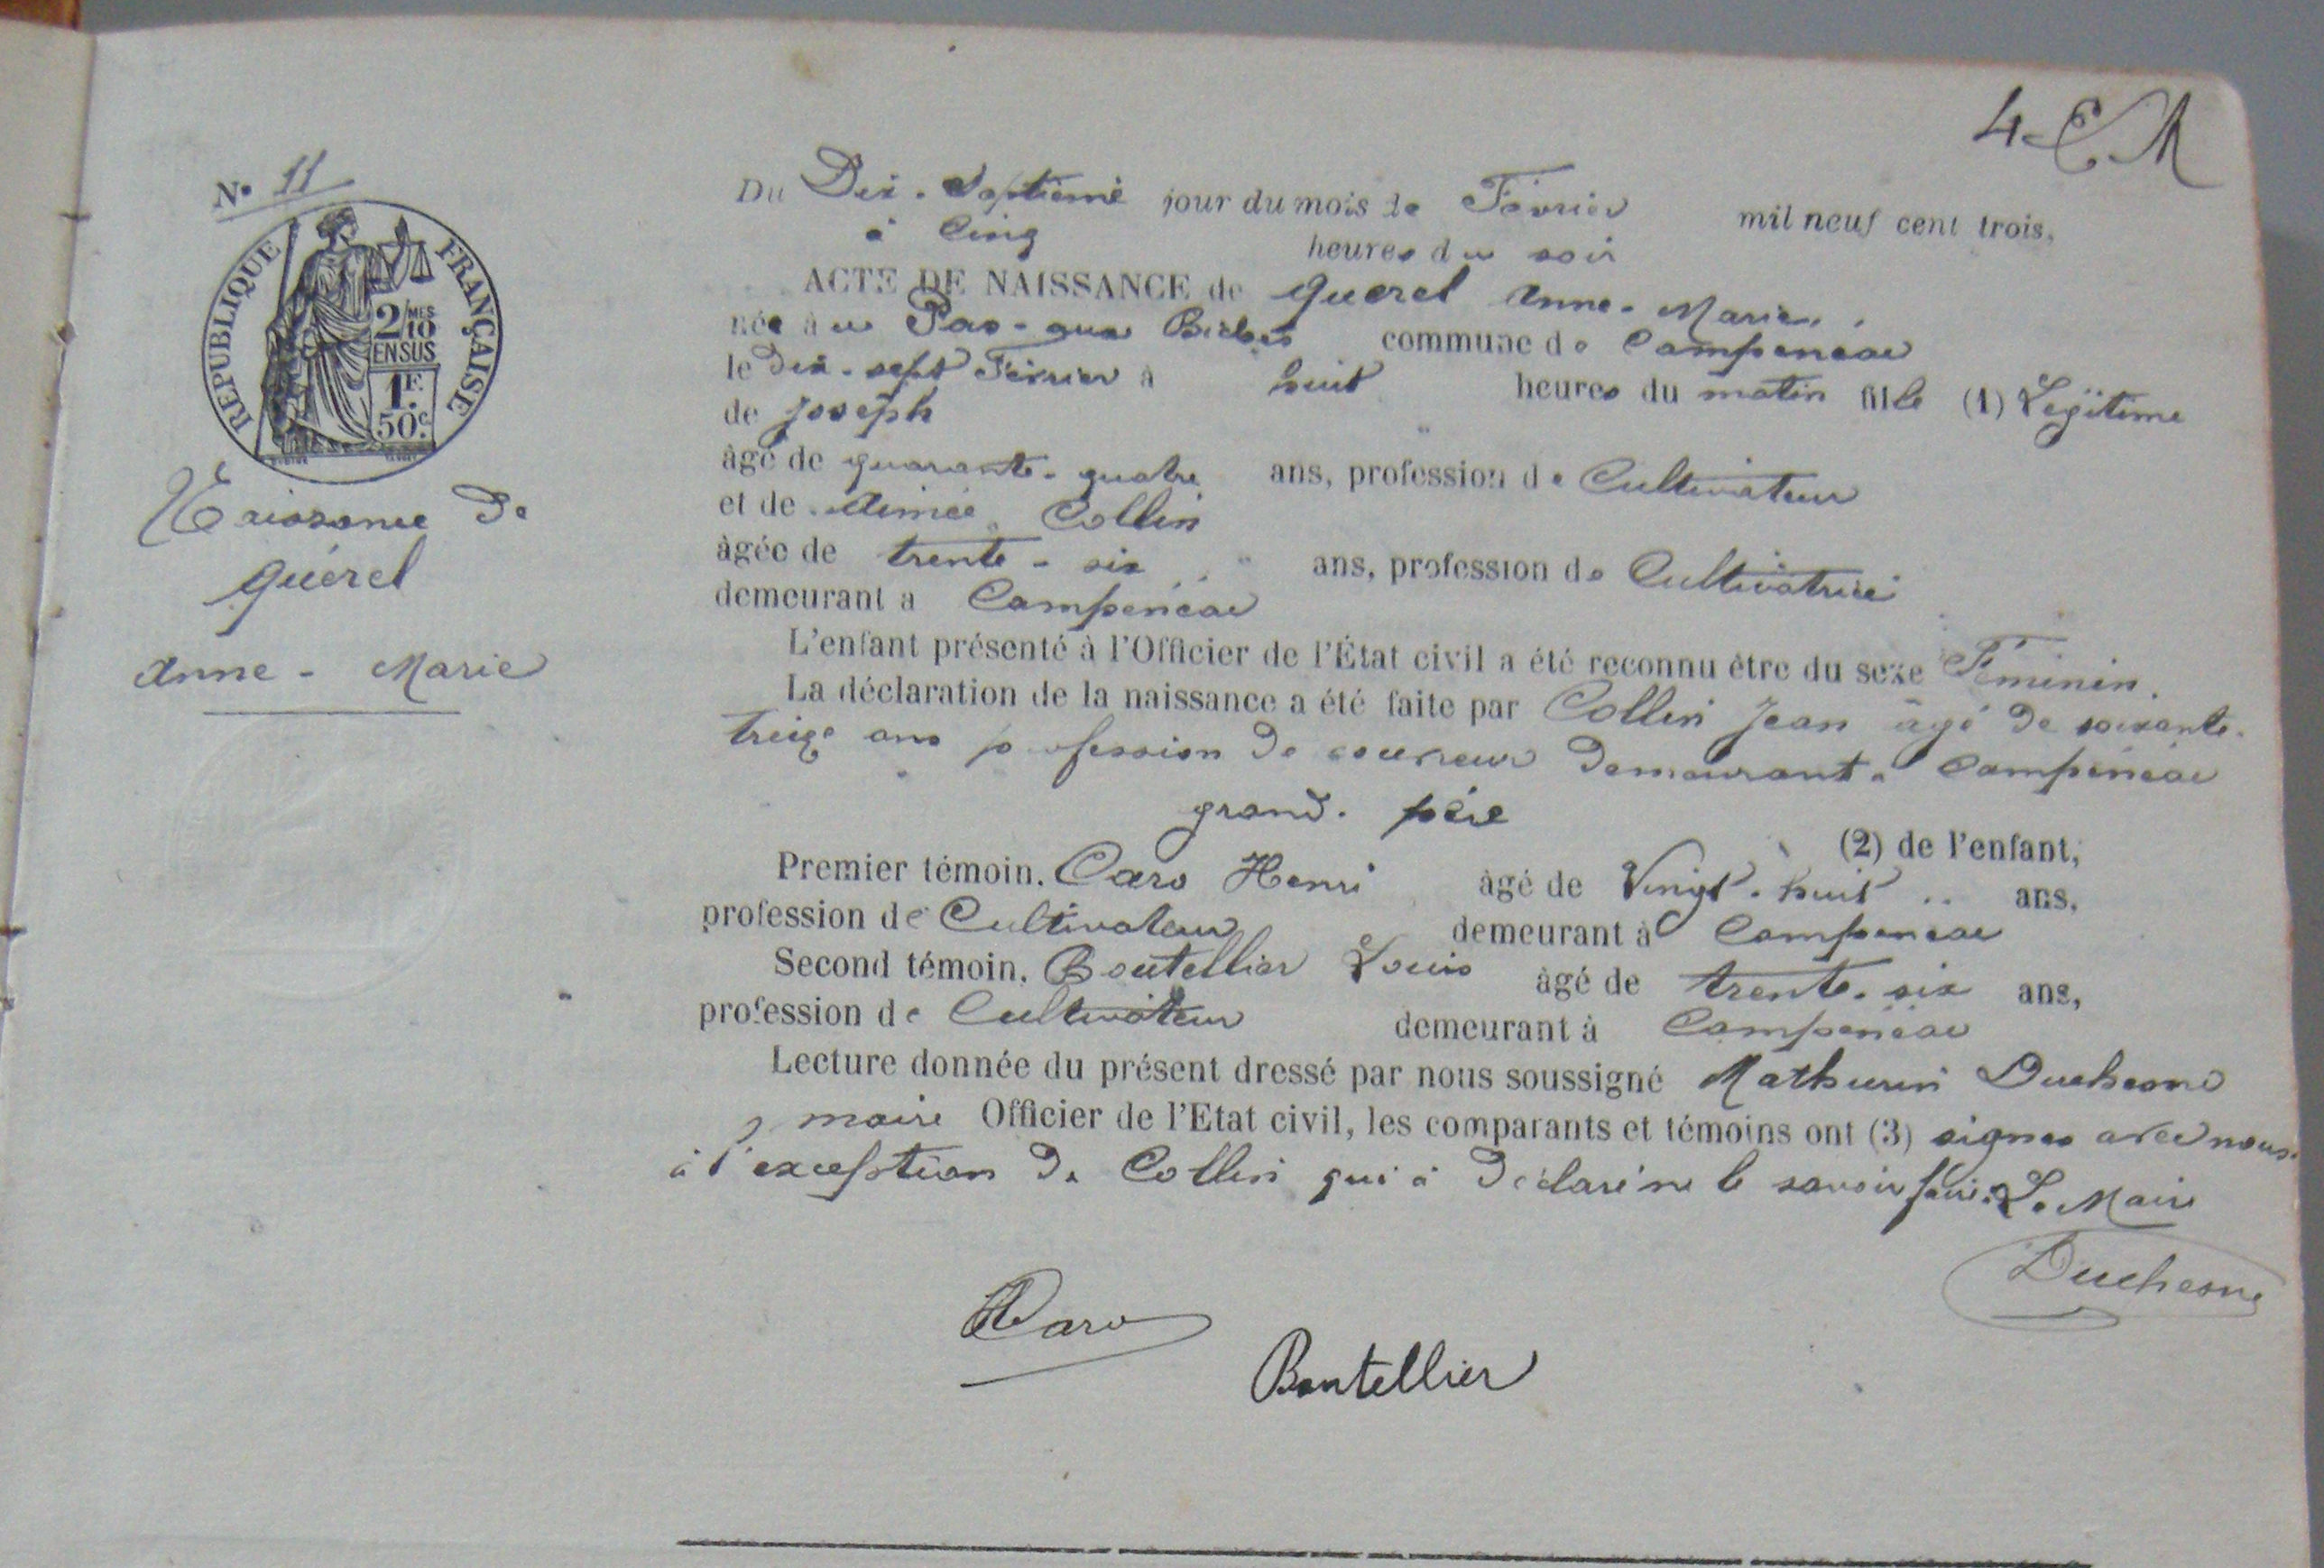 4 E M
N° 11
RÉPUBLIQUE FRANÇAISE
2/MES
10
EN SUS
1F.
50c.
Naissance de
Quérel
Anne - Marie
Du Dix-Septième jour du mois de Février mil neuf cent trois,
à Cinq heures du soir
ACTE DE NAISSANCE de Querel Anne-Marie
née à u Pas-aux Biches commune de Campénéac
le Dix-sept Février à huit heures du matin fille (1) Légitime
de Joseph
âgé de quarante-quatre ans, profession de Cultivateur
et de Aimée Collin
âgée de trente-six ans, profession de Cultivatrice
demeurant à Campénéac
L'enfant présenté à l'Officier de l'État civil a été reconnu être du sexe Féminin.
La déclaration de la naissance a été faite par Collin Jean âgé de soixante-
treize ans profession de couvreur demeurant à Campénéac
grand-père (2) de l'enfant,
Premier témoin. Caro Henri âgé de Vingt-huit ans,
profession de Cultivateur demeurant à Campénéac
Second témoin. Boutellier Louis âgé de trente-six ans,
profession de Cultivateur demeurant à Campénéac
Lecture donnée du présent dressé par nous soussigné Mathurin Duchesne
, maire Officier de l'Etat civil, les comparants et témoins ont (3) signés avec nous
à l'exception de Collin qui a déclaré ne le savoir faire. Le Maire
Duchesne
HCaro
Boutellier